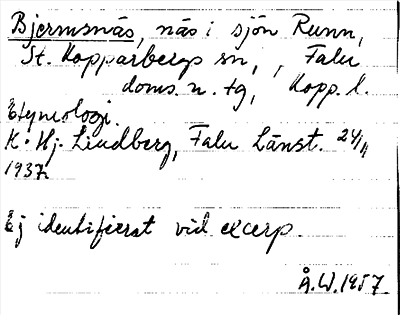 Bjermsnäs, näs i sjön Runn,
St. Kopparbergs sn, , Falu
doms. n. tg, Kopp. l.
Etymologi.
K. Hj. Lindberg, Falu Länst. 24/11
1937
Ej identifierat vid excerp.
Å.W. 1957